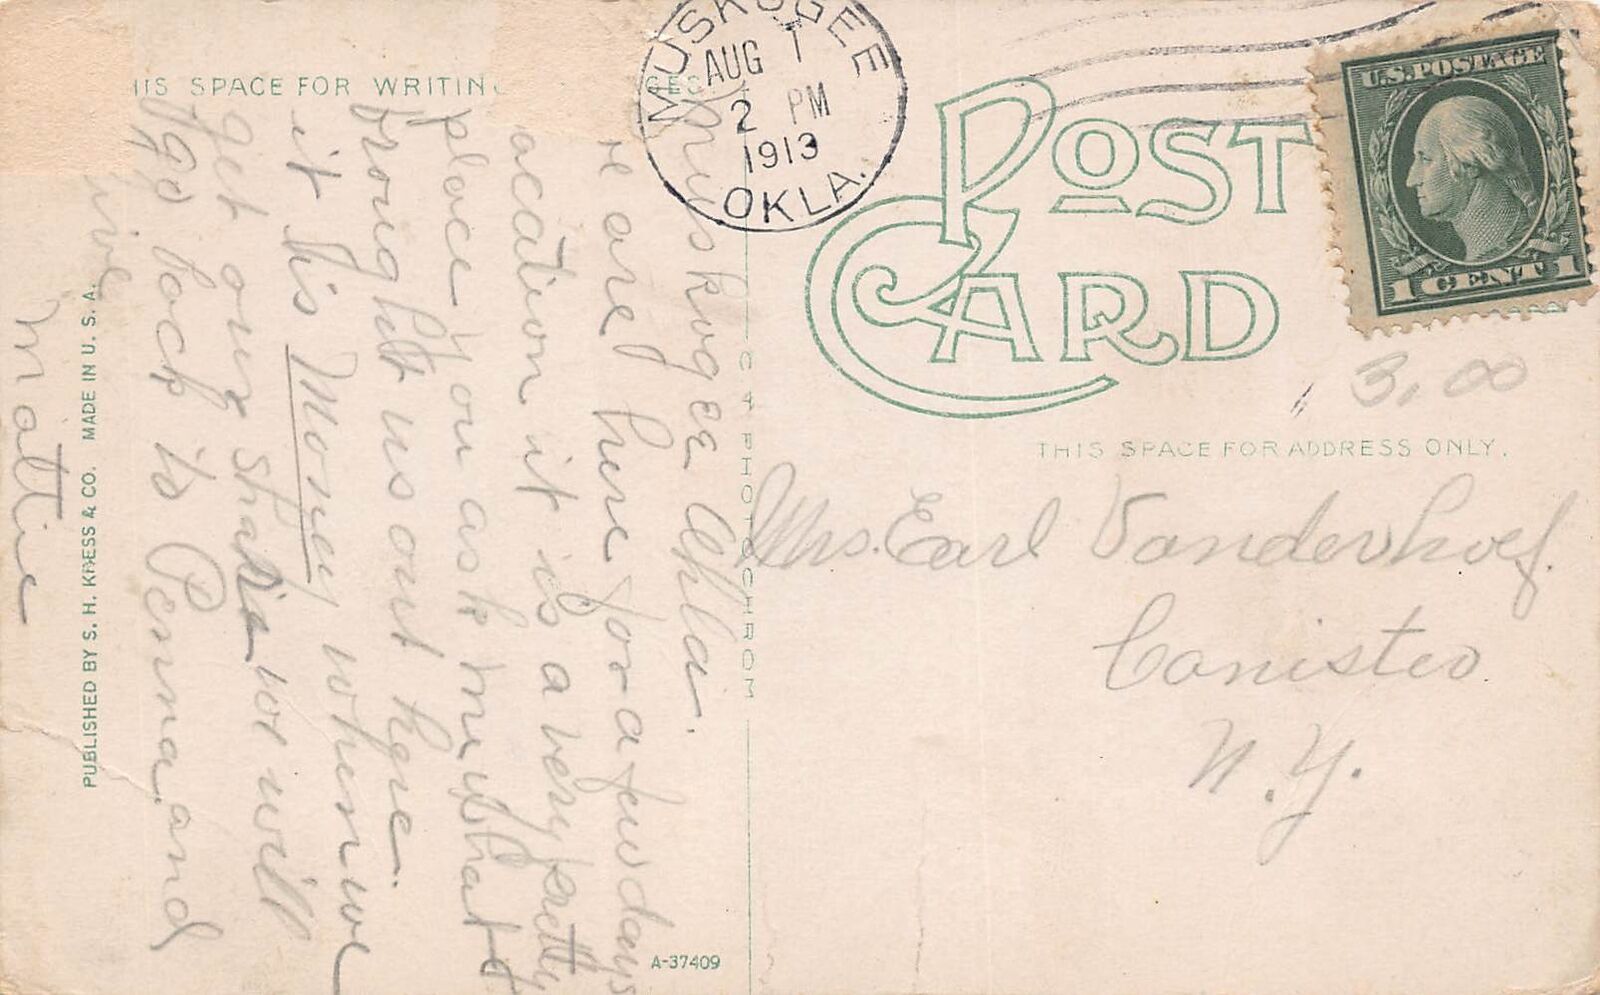 MUSKOGEE
AUG 1
2 PM
1913
OKLA.
U.S. POSTAGE
1 CENT 1
POST CARD
HIS SPACE FOR WRITING
GES
THIS SPACE FOR ADDRESS ONLY.
3.00
Mrs. Earl Vanderhoef.
Canisteo
N.Y.
Muskogee Okla.
re are here for a few days
acation it is a very pretty
place you ask me what
brought us out here.
it his Money when we
get our share we will
go back to Penna. and
live
Mattie
PUBLISHED BY S. H. KRESS & CO. MADE IN U. S. A.
C 4 PHOTOCHROM
A-37409